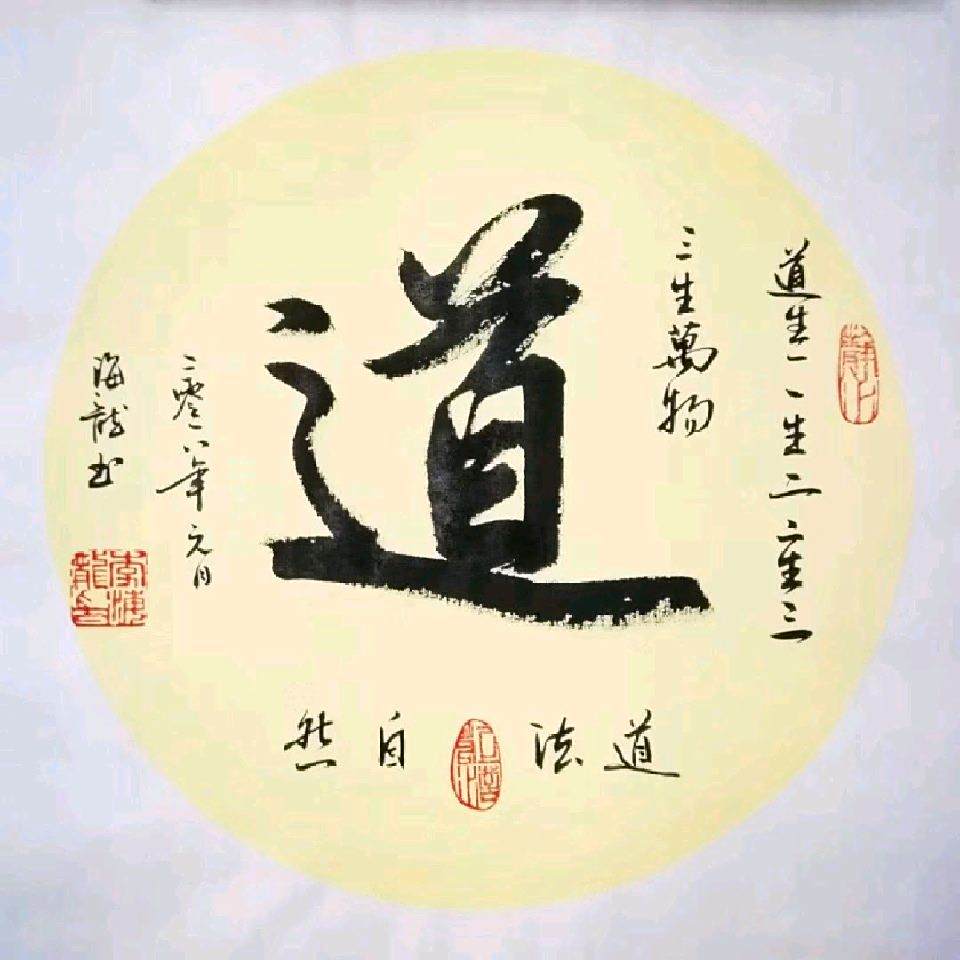 道
道生一一生二二生三
三生萬物
道法自然
二零一八年元月
海龍书